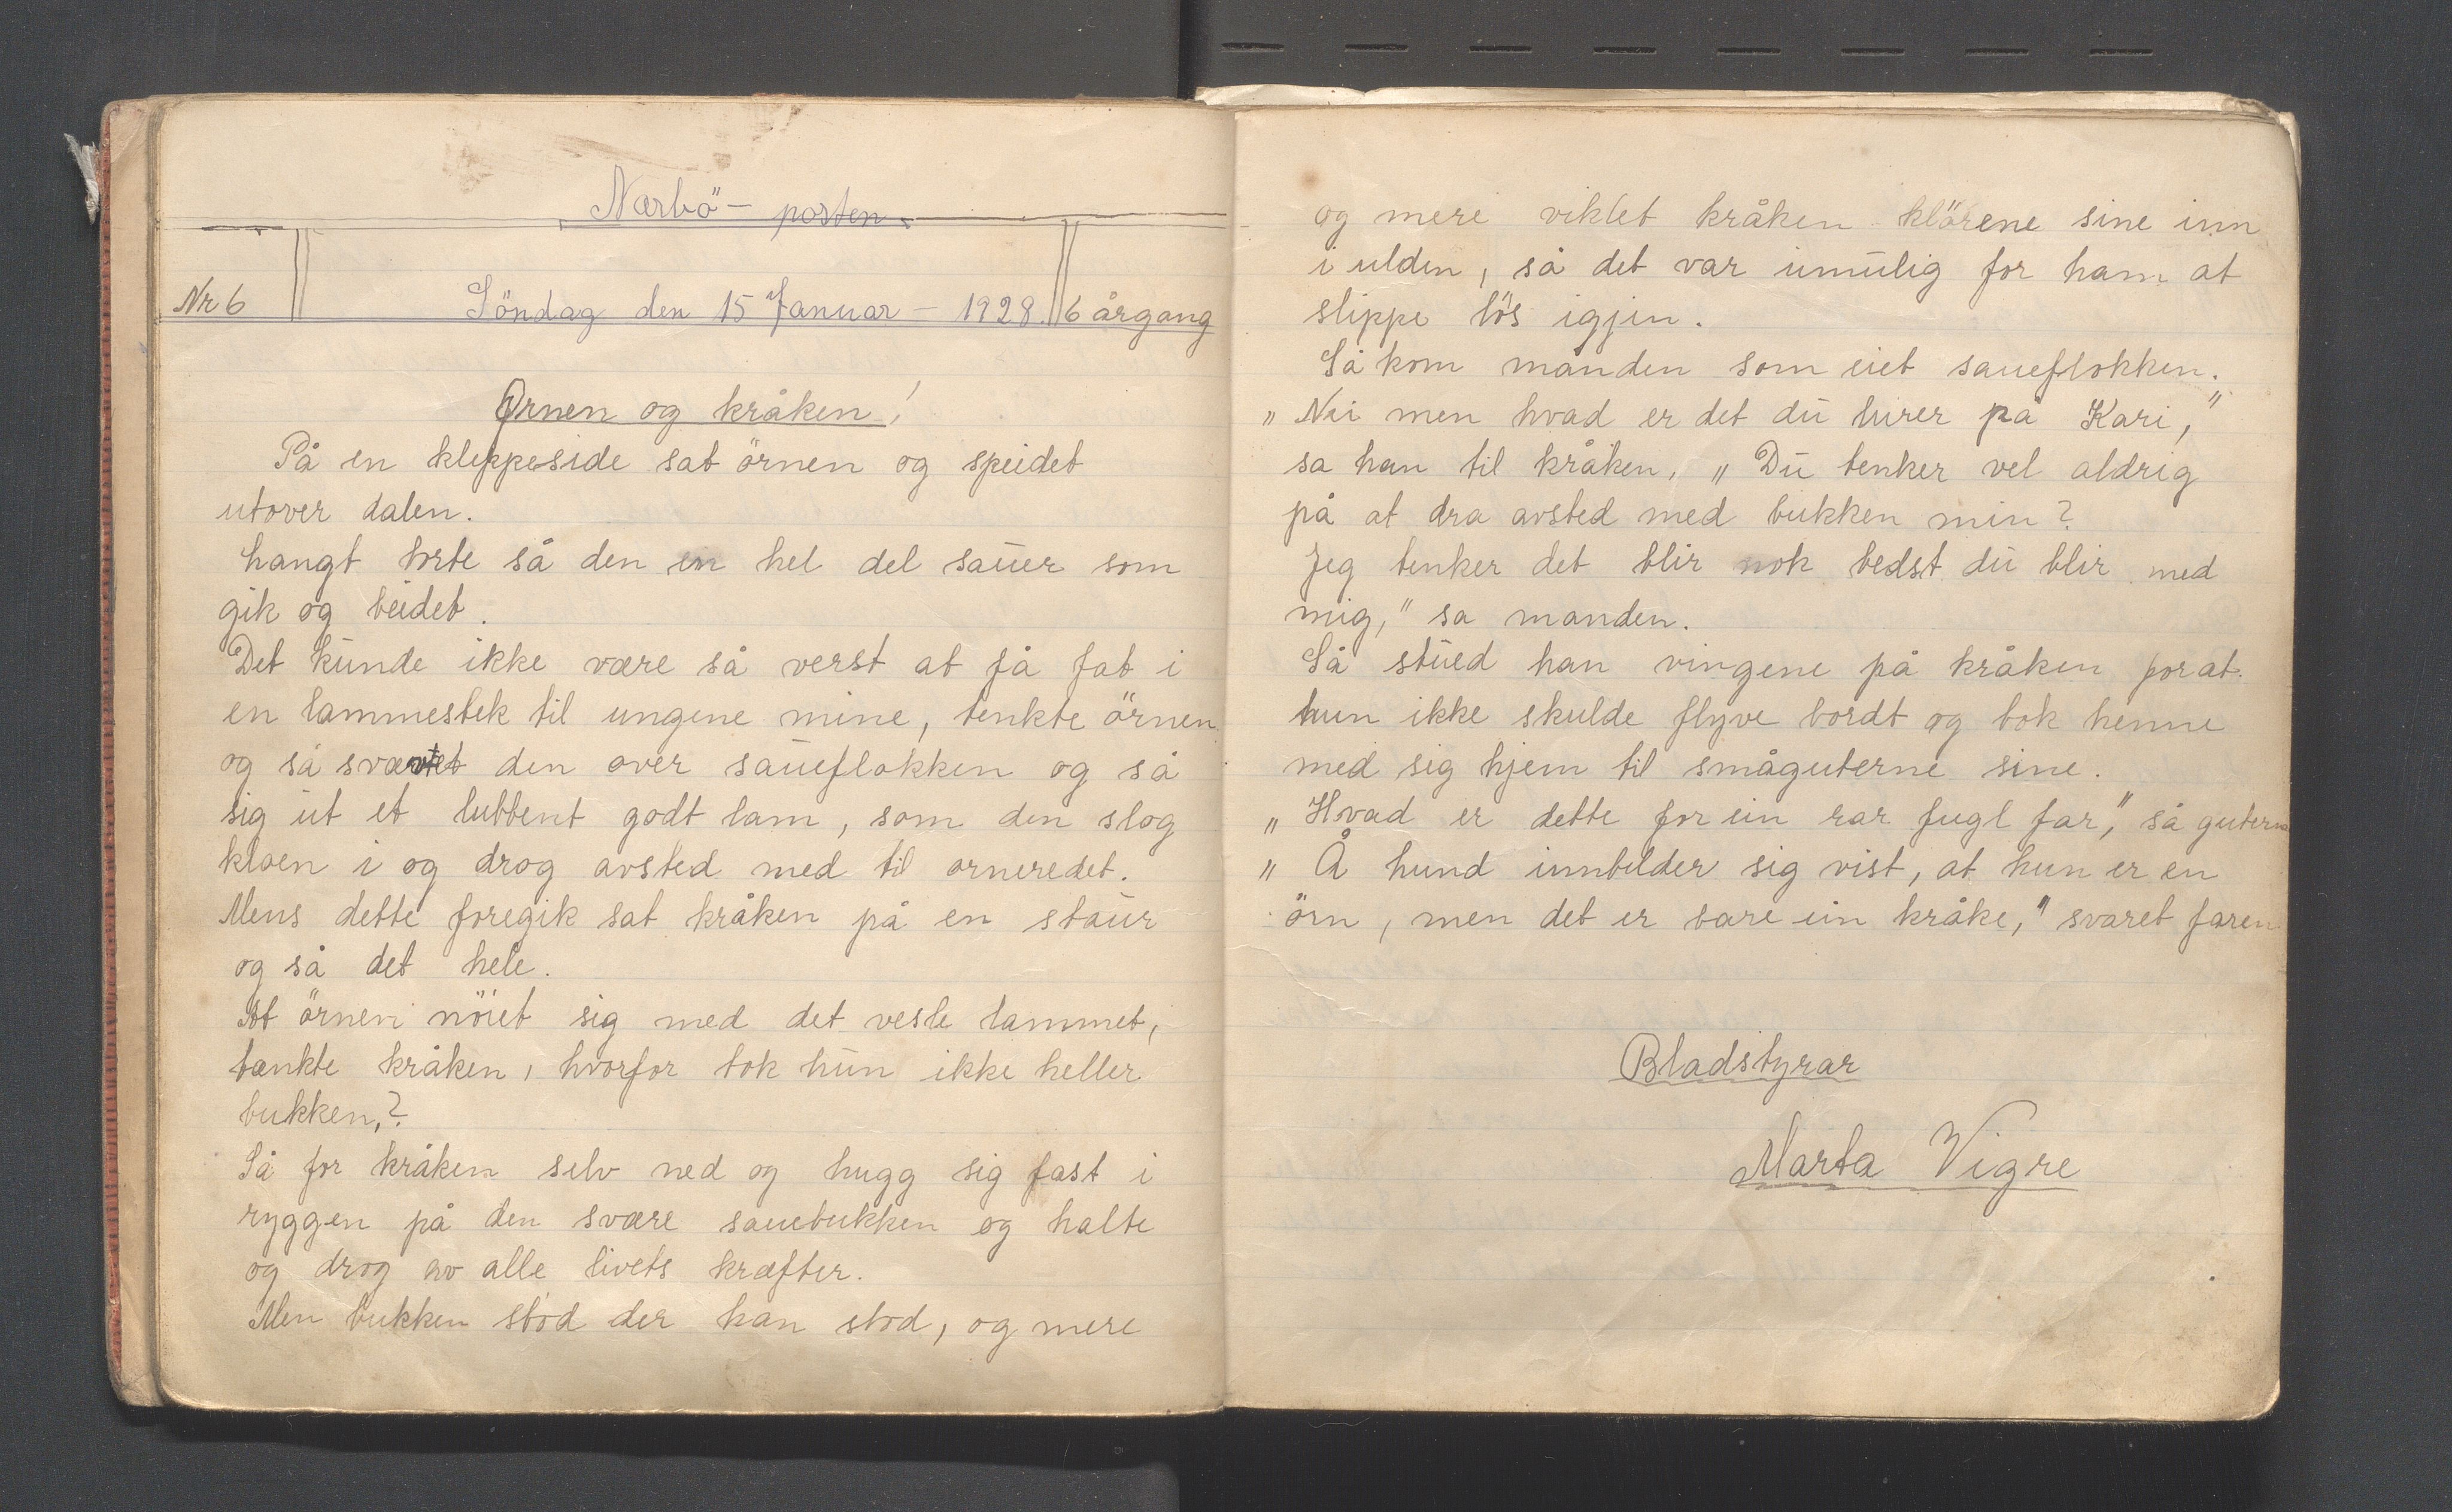 Nærbö - posten
Nr 6 Söndag den 15 Januar - 1928. 6 årgang
Ørnen og kråken!
På en kleppeside sat örnen og speidet
utover dalen.
Langt borte så den en hel del sauer som
gik og beidet.
Det kunde ikke være så verst at få fat i
en lammestek til ungene mine, tenkte örnen
og så svævtet den over saueflokken og så
sig ut et lubbent godt lam, som den slog
kloen i og drog avsted med til orneredet.
Mens dette foregik sat kråken på en staur
og så det hele.
At örnen nöiet sig med det vesle lammet,
tænkte kråken, hvorfor tok hun ikke heller
bukken,?
Så for kråken selv ned og hugg sig fast i
ryggen på den svære sauebukken og halte
og drog av alle livets kræfter.
Men bukken stod der han stod, og mere
og mere viklet kråken klörene sine inn
i ulden, så det var umulig for ham at
slippe lös igjen.
Så kom manden som eiet saueflokken.
„ Nei men hvad er det du lurer på Kari,"
sa han til kråken. „ Du tenker vel aldrig
på at dra avsted med bukken min?
Jeg tenker det blir nok bedst du blir med
mig," sa manden.
Så stued han vingene på kråken forat
hun ikke skulde flyve bordt og tok henne
med sig hjem til småguterne sine.
„ Hvad er dette for ein rar fugl far," så guterne
„ Å hund innbilder sig vist, at hun er en
örn, men det er bare ein kråke," svaret faren
Bladstyrar
Marta Vigre